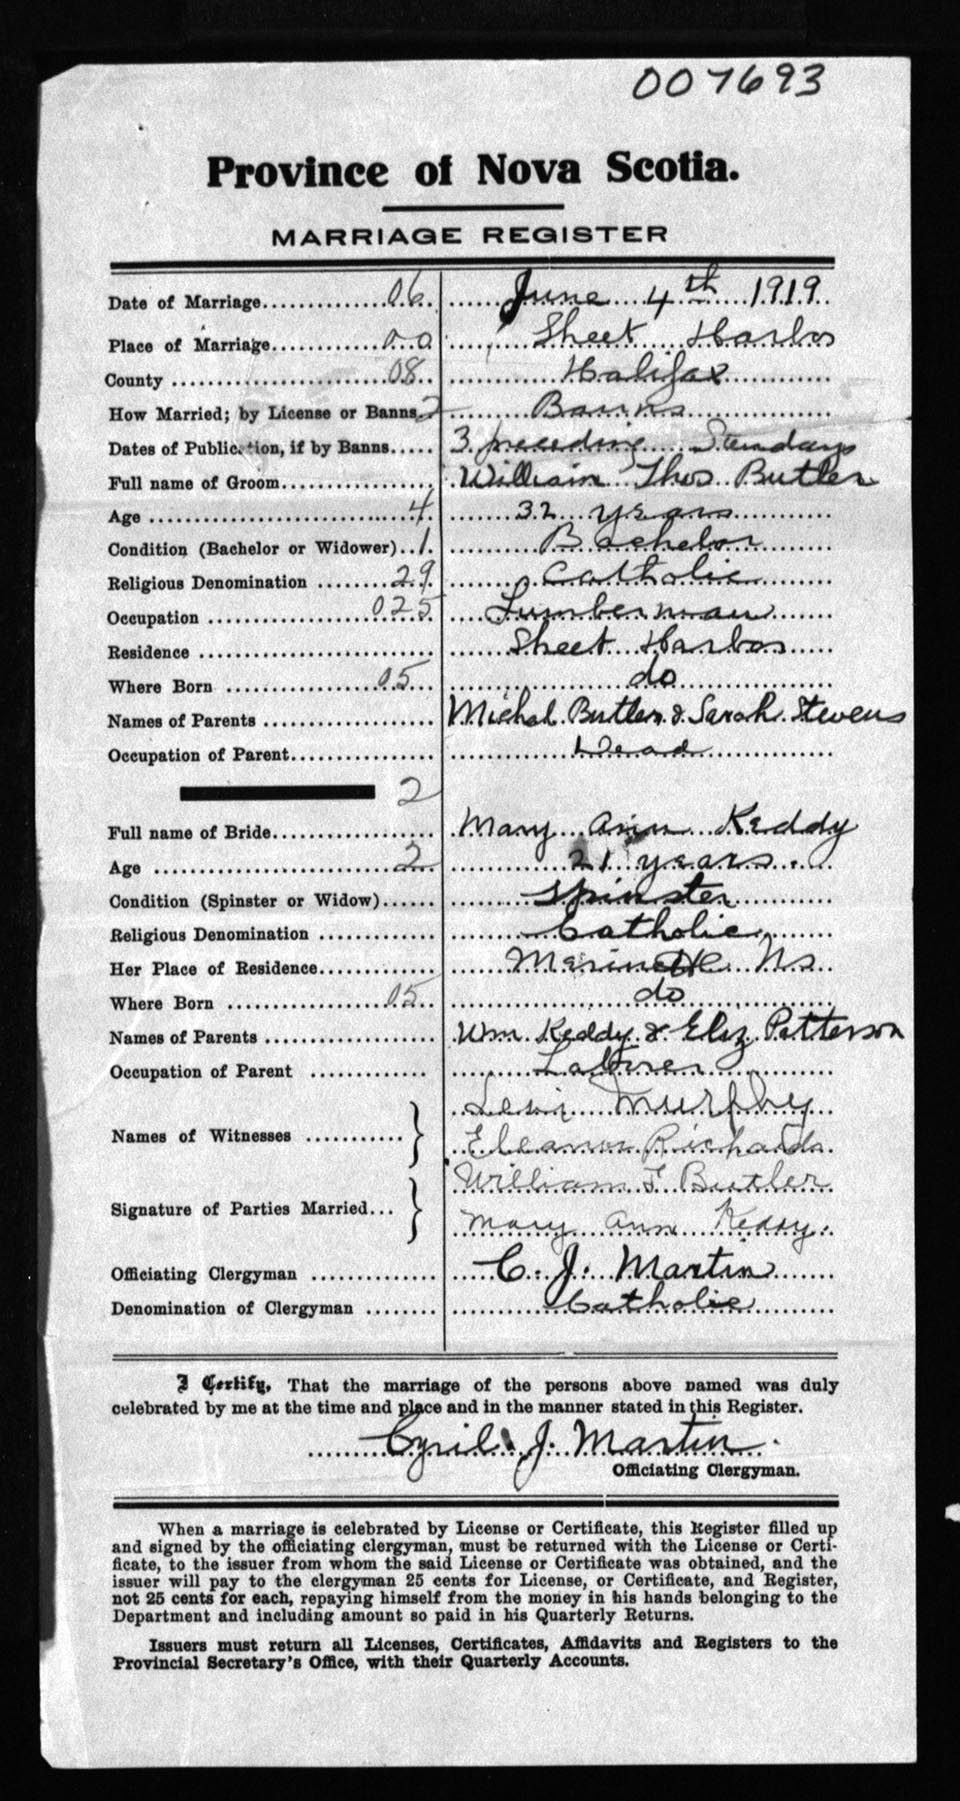 007693
Province of Nova Scotia.
MARRIAGE REGISTER
Date of Marriage 06 June 4th 1919
Place of Marriage 00 Sheet Harbor
County 08 Halifax
How Married; by License or Banns 2 Banns
Dates of Publication, if by Banns 3 preceding Sundays
Full name of Groom William Thos Butler
Age 4 32 years
Condition (Bachelor or Widower) 1 Bachelor
Religious Denomination 29 Catholic
Occupation 025 Lumberman
Residence Sheet Harbor
Where Born 05 do
Names of Parents Michal Butler & Sarah Stevens
Occupation of Parent Dead
2
Full name of Bride Mary Ann Keddy
Age 2 21 years.
Condition (Spinster or Widow) Spinster
Religious Denomination Catholic
Her Place of Residence Marinette Ns
Where Born 05 do
Names of Parents Wm Keddy & Eliz Patterson
Occupation of Parent Laborer
Names of Witnesses Levi Murphy
Eleanor Richards
Signature of Parties Married William T Butler
Mary Ann Keddy.
Officiating Clergyman C. J. Martin
Denomination of Clergyman Catholic
I Certify, That the marriage of the persons above named was duly
celebrated by me at the time and place and in the manner stated in this Register.
Cyril J. Martin
Officiating Clergyman.
When a marriage is celebrated by License or Certificate, this Register filled up
and signed by the officiating clergyman, must be returned with the License or Certi-
ficate, to the issuer from whom the said License or Certificate was obtained, and the
issuer will pay to the clergyman 25 cents for License, or Certificate, and Register,
not 25 cents for each, repaying himself from the money in his hands belonging to the
Department and including amount so paid in his Quarterly Returns.
Issuers must return all Licenses, Certificates, Affidavits and Registers to the
Provincial Secretary's Office, with their Quarterly Accounts.